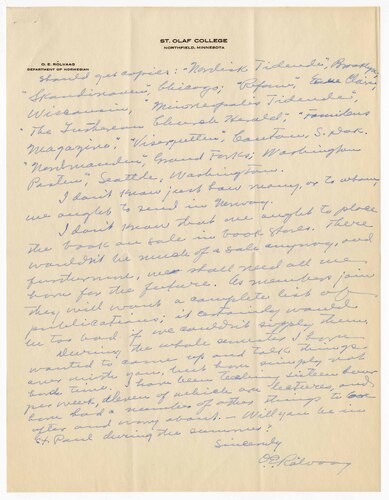 ST. OLAF COLLEGE
NORTHFIELD, MINNESOTA
O. E. RÖLVAAG
DEPARTMENT OF NORWEGIAN
should get copies: "Nordisk Tidende", Brooklyn,
"Skandinaven", Chicago; "Reform", Eau Claire,
Wisconsin, "Minneapolis Tidende",
"The Lutheran Church Herald" "Familiens
Magazine", "Visergutten", Canton, S. Dak.
"Normanden", Grand Forks, Washington
Posten", Seattle, Washington.
I don't know just how many, or to whom,
we ought to send in Norway.
I don't know that we ought to place
the book on sale in book stores. There
wouldn't be much of a sale anyway, and
furthermore, we shall need all we
have for the future. As members join
they will want a complete list of
publications; it certainly would
be too bad if we couldn't supply them.
During the whole semester I have
wanted to come up and talk things
over with you, but have simply not
had time. I have been teaching sixteen hours
per week, eleven of which are lectures, and
have had a number of other things to look
after and worry about. — Will you be in
St Paul during the summer?
Sincerely
O. E. Rölvaag